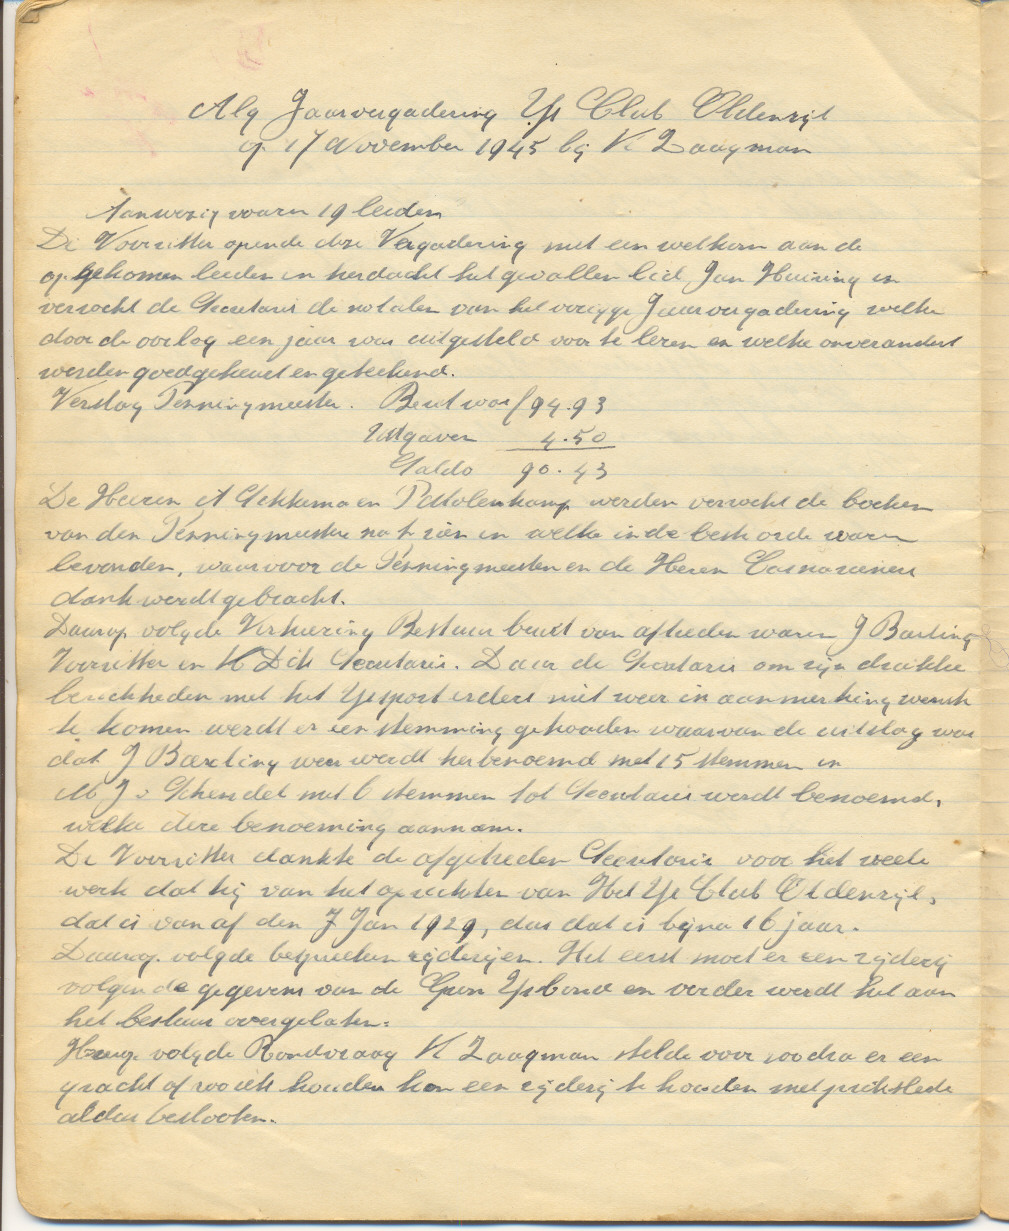 Alg Jaarvergadering Ys Club Oldenzijl
op 17 November 1945 bij K Zaagman
Aanwezig waren 19 leeden
De Voorzitter opende deze Vergadering met een welkom aan de
opgekomen leeden en herdacht het gevallen lid Jan Huizing en
verzocht de Secretaris de notulen van het vorigge Jaarvergadering welke
door de oorlog een jaar was uitgesteld voor te lezen en welke onverandert
werden goedgekeurt en geteekend.
Verslag Penningmeester. Bezit was f 94.93
Uitgaven 4.50
Saldo 90.43
De Heeren A Sekkema en P Stolenkamp werden verzocht de boeken
van den Penningmeester na te zien en welke in de beste orde waren
bevonden, waarvoor de Penningmeester en de Heren
dank werdt gebracht.
Daarop volgde Verkiezing Bestuur beurt van aftreden waren J Bartling
Voorzitter en K Dik Secretaris. Daar de Secretaris om zijn drukke
bezichheden met het Yssport erders niet weer in aanmerking wensh
te komen werdt er een stemming gehouden waarvan de uitslag was
dat J Bartling weer werdt herbenoemd met 15 stemmen en
M J v Schendel met 6 stemmen tot Secretaris werdt benoemd,
welke deze benoeming aannam.
De Voorzitter dankte de afgetreden Secretaris voor het veele
werk dat hij van het oprichten van Het Ys Club Oldenzijl,
dat is van af den 7 Jan 1929, dus dat is bijna 16 jaar.
Daarop volgde bespreeken rijderijen. Het eerst moet er een rijderij
volgende gegevens van de Gron Ysbond en verder werdt het aan
het bestuur overgelaten.
Hierop volgde Rondvraag K Zaagman stelde voor zoodra er een
gracht of zooiets houden kon een rijderij te houden met prikslede
aldus beslooten.